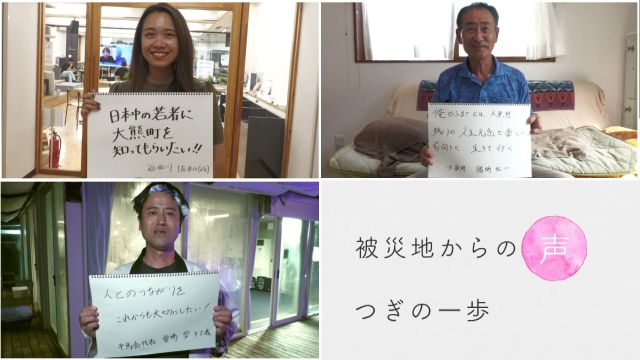 日本中の若者に
大熊町を
知ってもらいたい!!
俺のふるさとは 大熊町
残りの人生元気で楽しく
前向きに 生きて行く
大熊町
人とのつながりを
これからも大切にしたい!
被災地からの声
つぎの一歩